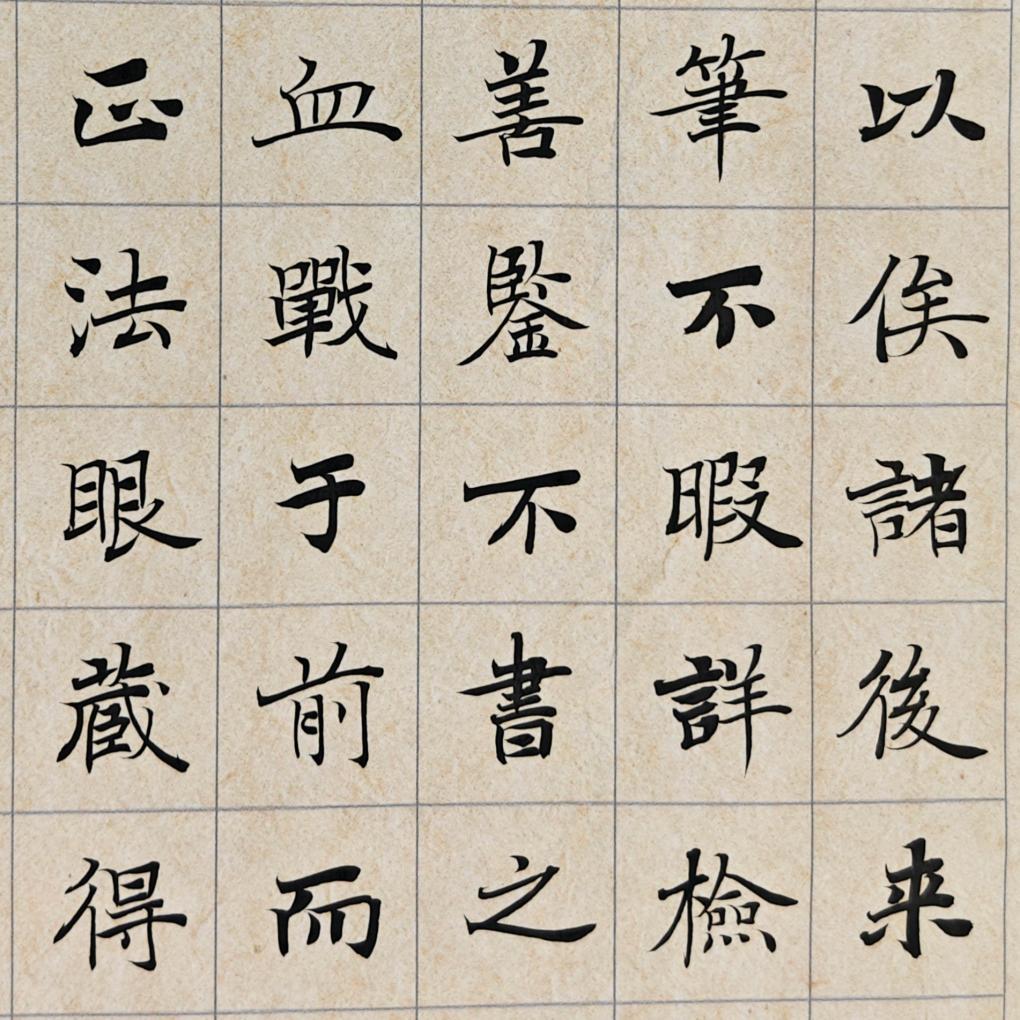 以俟諸後来
筆不暇詳檢
善鑒不書之
血戰于前而
正法眼蔵得